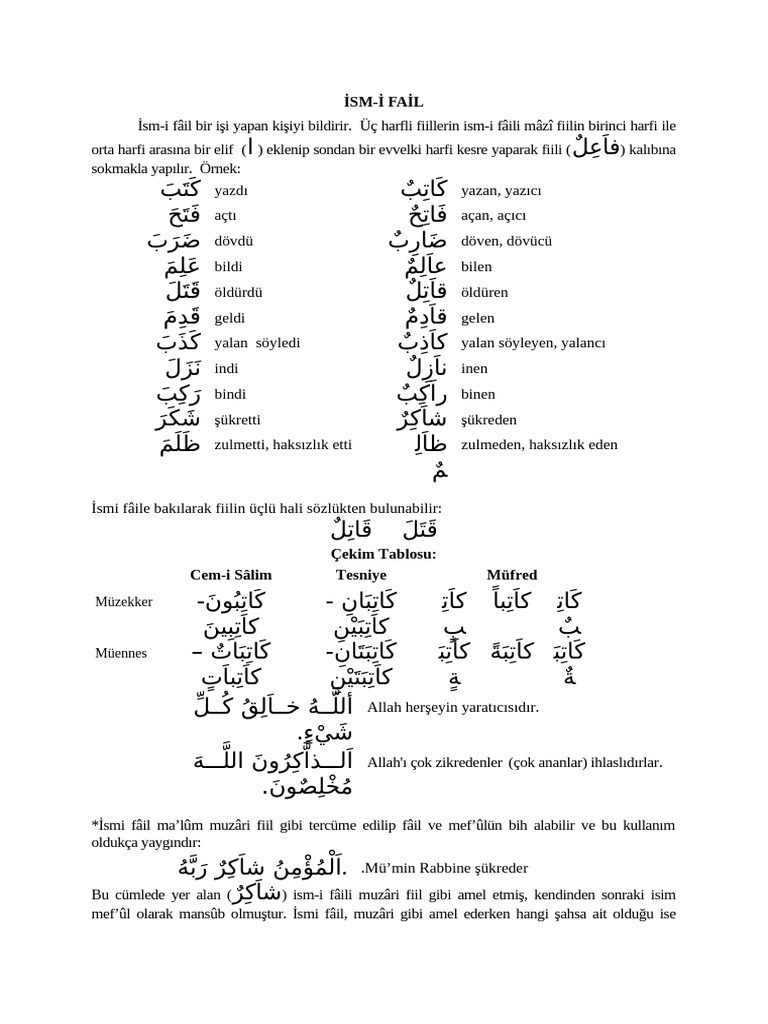 İSM-İ FAİL
İsm-i fâil bir işi yapan kişiyi bildirir. Üç harfli fiillerin ism-i fâili mâzî fiilin birinci harfi ile
orta harfi arasına bir elif (ا) eklenip sondan bir evvelki harfi kesre yaparak fiili (فاَعِلٌ) kalıbına
sokmakla yapılır. Örnek:
كَتَبَ yazdı كَاتِبٌ yazan, yazıcı
فَتَحَ açtı فَاتِحٌ açan, açıcı
ضَرَبَ dövdü ضَارِبٌ döven, dövücü
عَلِمَ bildi عاَلِمٌ bilen
قَتَلَ öldürdü قاَتِلٌ öldüren
قَدِمَ geldi قاَدِمٌ gelen
كَذَبَ yalan söyledi كاَذِبٌ yalan söyleyen, yalancı
نَزَلَ indi ناَزِلٌ inen
رَكِبَ bindi راَكِبٌ binen
شَكَرَ şükretti شاَكِرٌ şükreden
ظَلَمَ zulmetti, haksızlık etti ظاَلِ zulmeden, haksızlık eden
مٌ
İsmi fâile bakılarak fiilin üçlü hali sözlükten bulunabilir:
قَتَلَ قَاتِلٌ
Çekim Tablosu:
Cem-i Sâlim Tesniye Müfred
Müzekker كَاتِبُونَ- كَاتِبَانِ - كاَتِ كاَتِباً كَاتِ
كاَتِبِينَ كاَتِبَيْنِ بٍ بٌ
Müennes كَاتِبَاتٌ – كَاتِبَتَانِ- كاَتِبَ كاَتِبَةً كَاتِبَ
كاَتِباَتٍ كاَتِبَتَيْنِ ةٍ ةٌ
أللَّــهُ خــاَلِقُ كُــلِّ Allah herşeyin yaratıcısıdır.
شَيْءٍ.
اَلـــذاَّكِرُونَ اللَّـــهَ Allah'ı çok zikredenler (çok ananlar) ihlaslıdırlar.
مُخْلِصُونَ.
*İsmi fâil ma’lûm muzâri fiil gibi tercüme edilip fâil ve mef’ûlün bih alabilir ve bu kullanım
oldukça yaygındır:
اَلْمُؤْمِنُ شاَكِرٌ رَبَّهُ. .Mü’min Rabbine şükreder
Bu cümlede yer alan (شاَكِرٌ) ism-i fâili muzâri fiil gibi amel etmiş, kendinden sonraki isim
mef’ûl olarak mansûb olmuştur. İsmi fâil, muzâri gibi amel ederken hangi şahsa ait olduğu ise